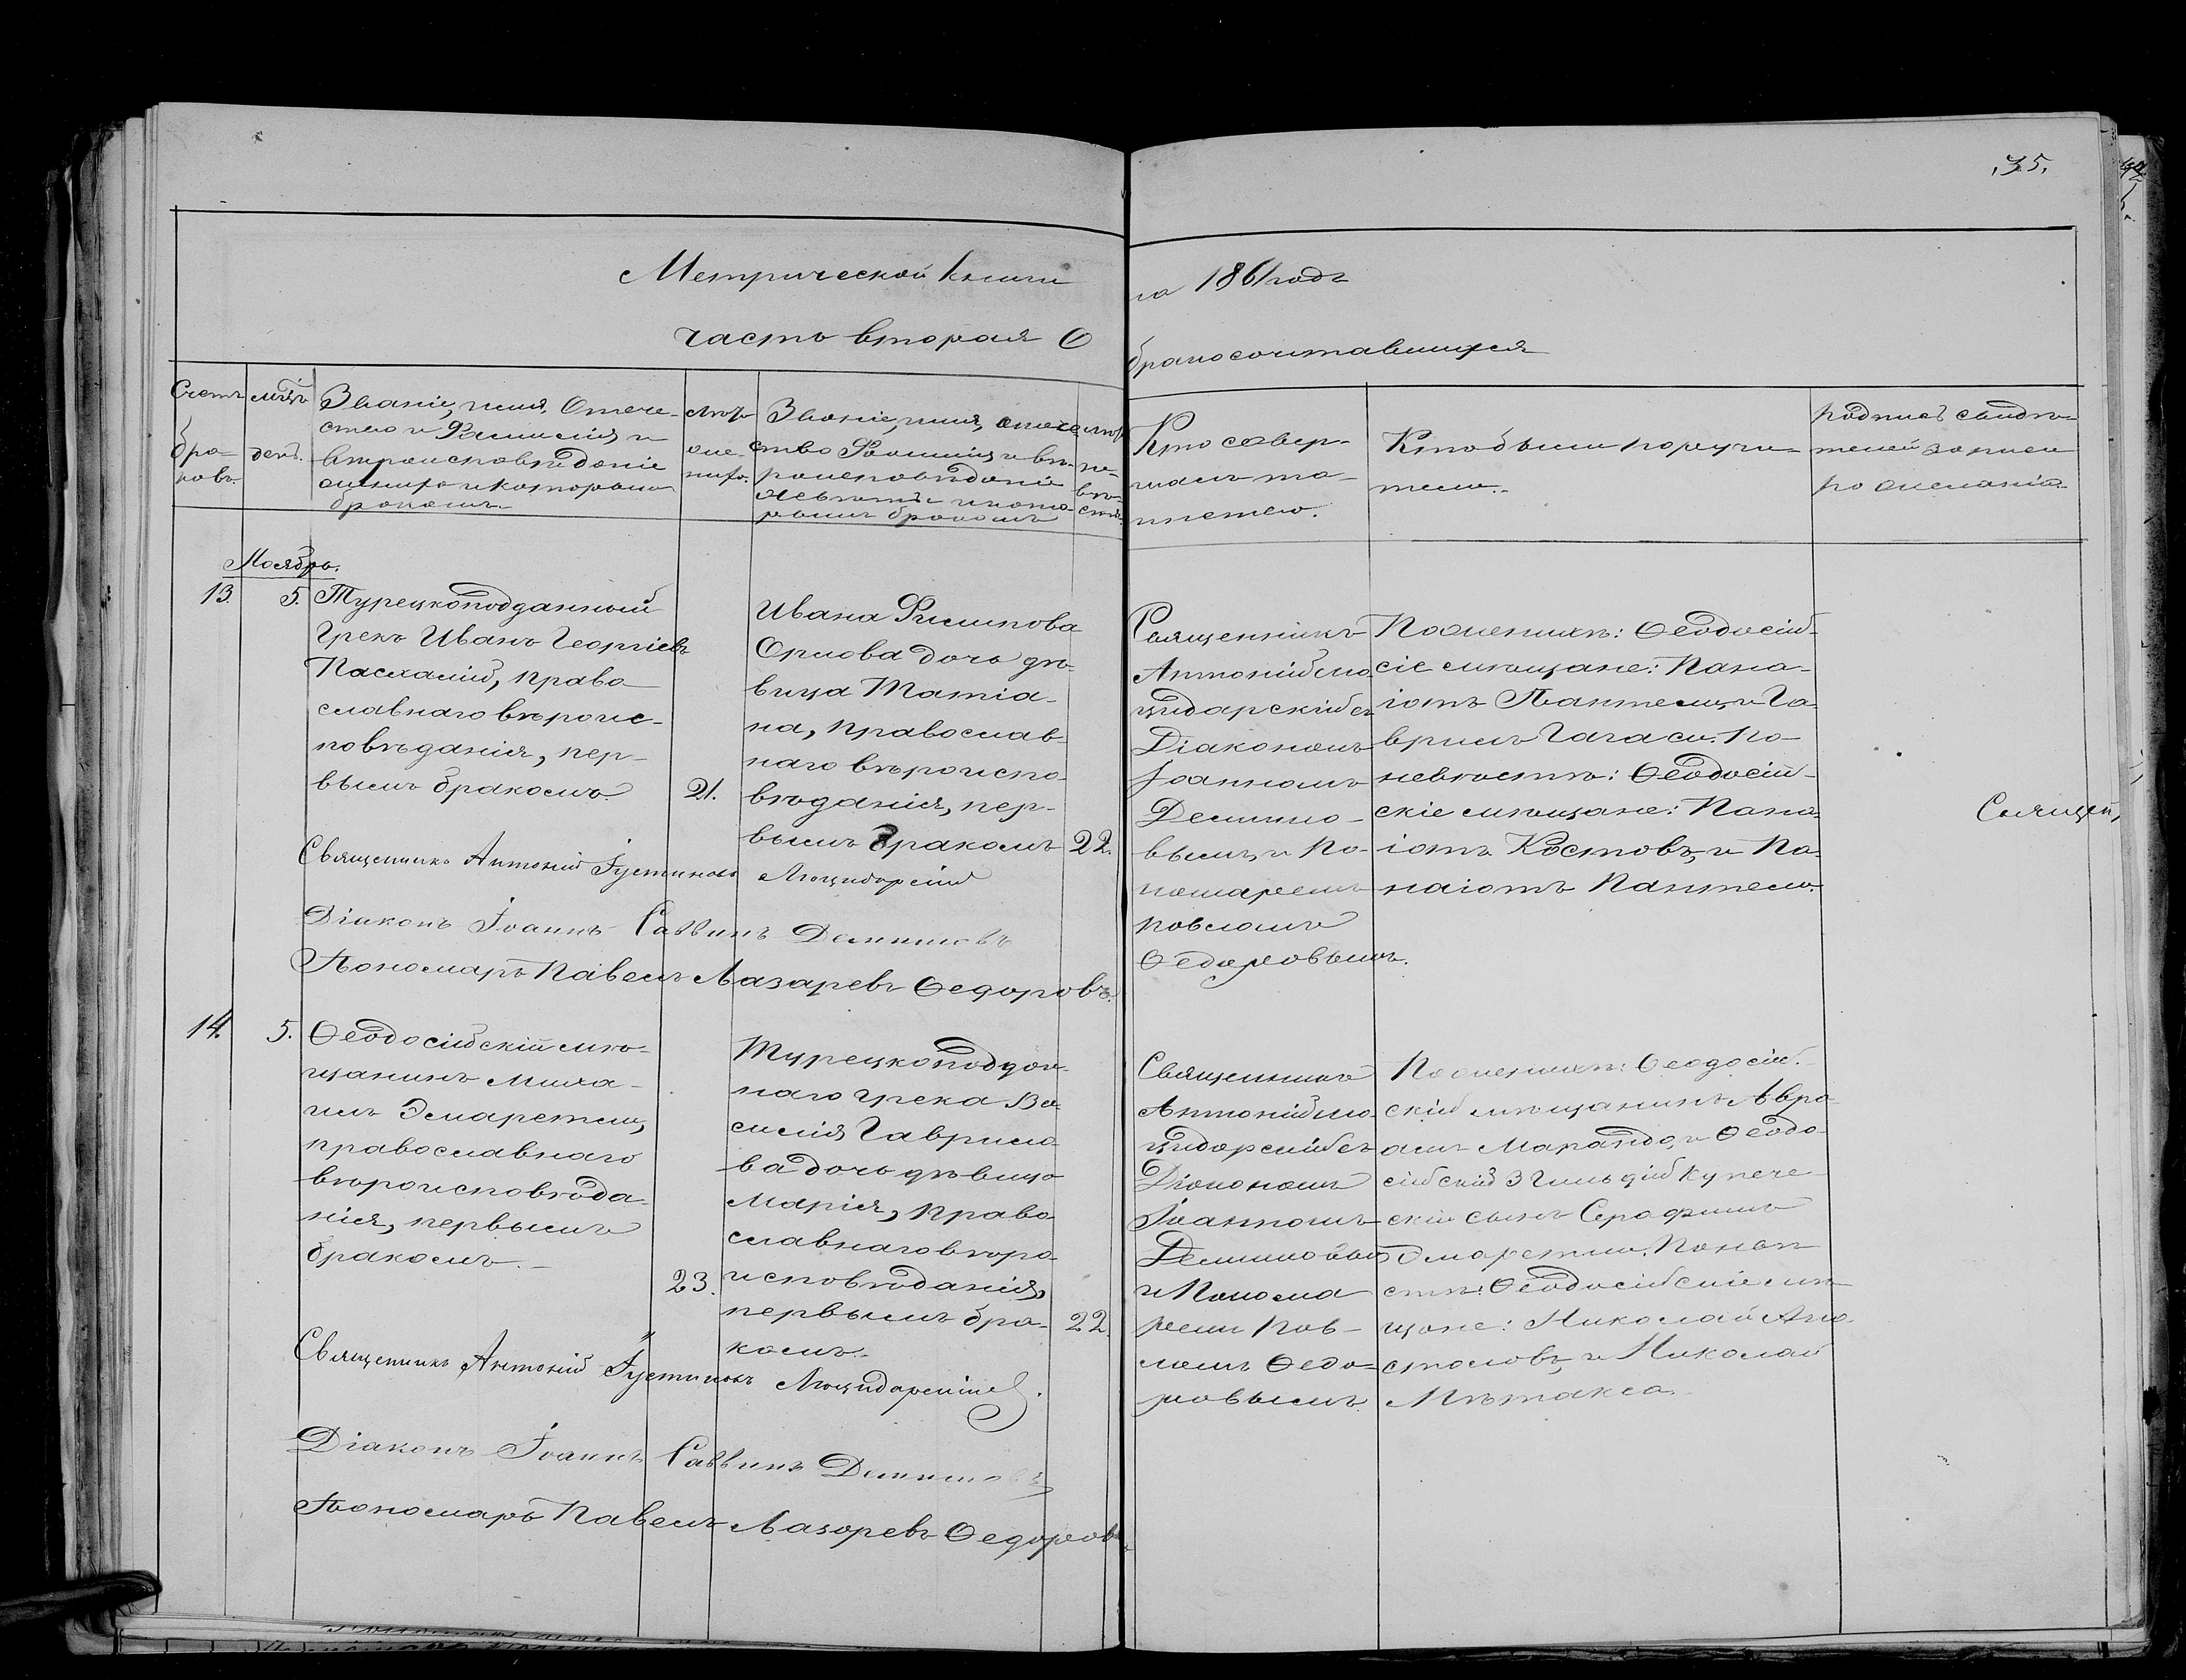 35.
Метрической книги
на 1861 годъ
часть вторая О
бракосочетавшихся
Счетъ
бра=
ковъ.
мѣсцъ
день.
Званіе, имя, Отече-
ство и Фамилія и
вѣроисповѣданіе
жениха и которымъ
бракомъ.
лѣта
жe-
ниха.
Званіе, имя, отече
ство Фамилія и вѣ-
роисповѣданіе
невѣсты и кото-
рымъ бракомъ
лѣта
не-
вѣ-
сты.
Кто совер-
шалъ та-
инство.
Кто были поручи-
тели.
подпись свидѣ-
телей записи
по желанію.
Ноябрь.
13.
5.
Турецкоподданный
Грекъ Иванъ Георгіевъ
Пасхалій, право
славнаго вѣроис-
повѣданія, пер-
вымъ бракомъ.
21.
Ивана Филипова
Орлова дочь дѣ-
вица Татіа-
на, православ-
наго вѣроиспо-
вѣданія, пер-
вымъ бракомъ
22.
Священникъ
Антоній Лю
цидарскій съ
Діакономъ
Іоанномъ
Демишо-
вымъ и По-
номаремъ
Павломъ
Ѳедоровымъ.
По женихѣ: Ѳеодосій-
скіе мѣщане: Пана-
іотъ Пантели и Га-
врилъ Гагаси. По
невѣстѣ: Ѳеодосій-
скіе мѣщане: Пана-
іотъ Костовъ, и Па-
наіотъ Пантели.
Священ
Священникъ Антоній Іустиновъ Люцидарскій
Діаконъ Іоаннъ Саввинъ Демишовъ
Пономарь Павелъ Лазаревъ Ѳедоровъ.
14.
5.
Ѳеодосійскій мѣ-
щанинъ Миха-
илъ Эмаретли,
православнаго
вѣроисповѣда-
нія, первымъ
бракомъ.
23.
Турецкоподдан-
наго Грека Ва-
силія Гаврило
ва дочь дѣвица
Марія, право
славнаго вѣро
исповѣданія,
первымъ бра-
комъ.
22.
Священникъ
Антоній Лю
цидарскій съ
Діакономъ
Іоанномъ
Демишовымъ
и Понома
ремъ Пав-
ломъ Ѳедо=
ровымъ.
По женихѣ: Ѳеодосій-
скій мѣщанинъ Авра
амъ Марандо, и Ѳеодо-
сійскій 3 гильдіи купече-
скій сынъ Серафимъ
Эмаретли. По невѣ
стѣ: Ѳеодосійскіе мѣ
щане: Николай Апо-
столовъ, и Николай
Метакса.
Священникъ Антоній Іустиновъ Люцидарскій.
Діаконъ Іоаннъ Саввинъ Демишовъ
Пономарь Павелъ Лазаревъ Ѳедоровъ